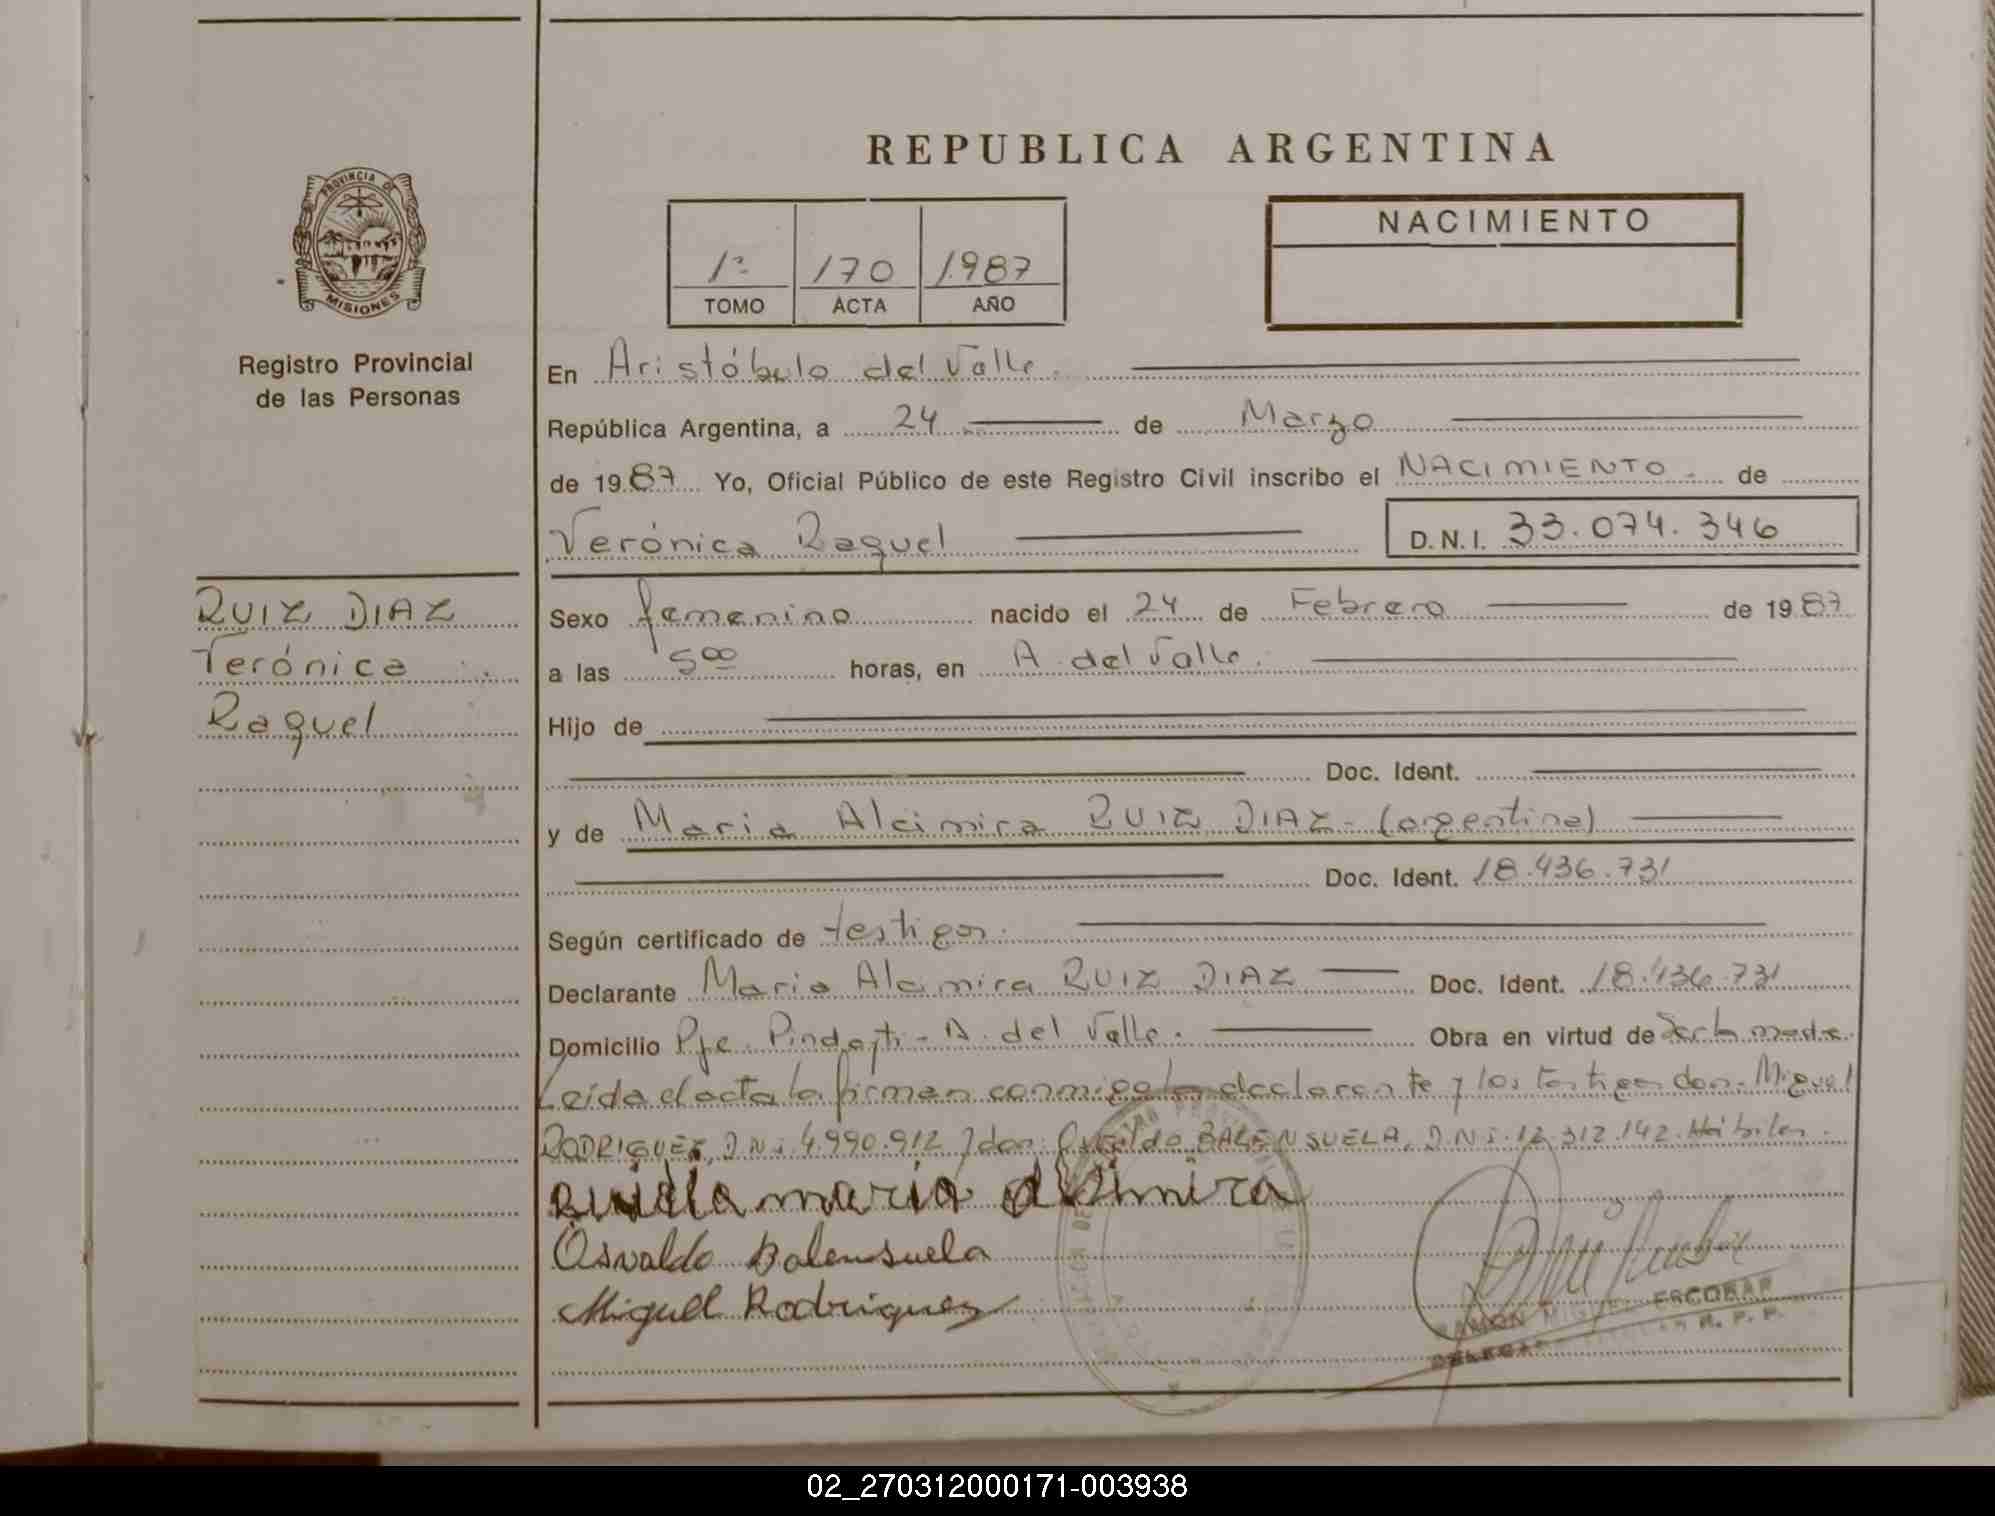 REPUBLICA ARGENTINA
PROVINCIA DE
MISIONES
Registro Provincial
de las Personas
1º 170 1987
TOMO ACTA AÑO
NACIMIENTO
En Aristóbulo del Valle.
República Argentina, a 24 de Marzo
de 1987 Yo, Oficial Público de este Registro Civil inscribo el NACIMIENTO - de
Verónica Raquel D.N.I. 33.074.346
RUIZ DIAZ
Verónica
Raquel
Sexo femenino nacido el 24 de Febrero de 1987
a las 5 00 horas, en A. del Valle.
Hijo de
Doc. Ident.
y de Maria Alcimira RUIZ DIAZ - (argentina)
Doc. Ident. 18.436.731
Según certificado de testigos.
Declarante Maria Alcimira RUIZ DIAZ Doc. Ident. 18.436.731
Domicilio Pje. Pindayti - A. del Valle. Obra en virtud de ser la madre.
Leída el acta la firman conmigo la declarante y los testigos don. Miguel
RODRIGUEZ, D.N.I. 4.990.912 y don: Osvaldo BALENSUELA, D.N.I. 12.312.142. Hábiles.
maria
Osvaldo Balensuela
Miguel Rodriguez
RAMON MIGUEL ESCOBAR
R. P. P.
02_270312000171-003938